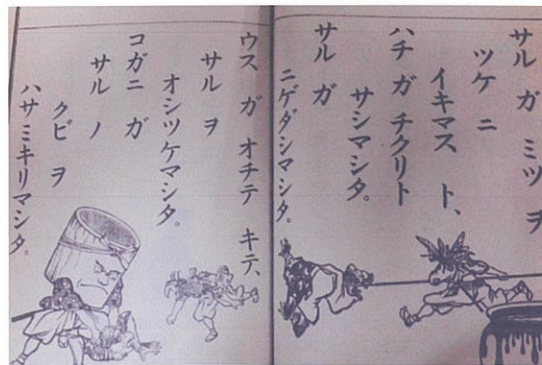 サル ガ ミツ ヲ
ツケ ニ
イキマス ト、
ハチ ガ チクリト
サシマシタ。
サル ガ
ニゲダシマシタ。
ウス ガ オチテ キテ、
サル ヲ
オシツケマシタ。
コガニ ガ
サル ノ
クビ ヲ
ハサミキリマシタ。